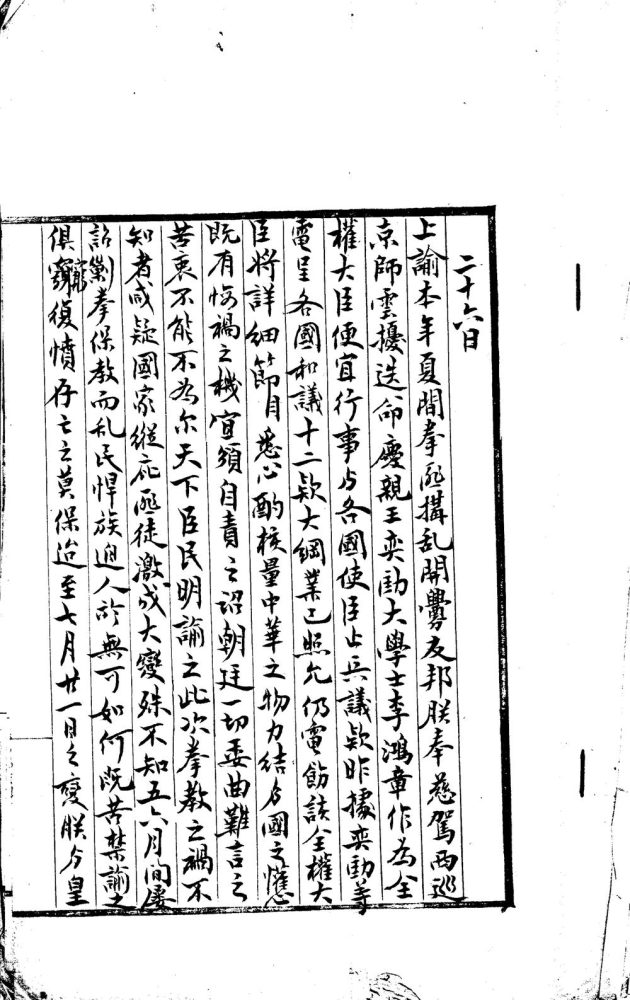 二十六日
上諭本年夏間拳匪搆乱開釁友邦朕奉慈駕西巡
京師雲擾迭命慶親王奕劻大學士李鴻章作為全
權大臣便宜行事与各國使臣止兵議款昨據奕劻等
電呈各國和議十二款大綱業已照允仍電飭該全權大
臣將詳細節目悉心酌核量中華之物力結与國之懽心
既有悔禍之機宜須自責之詔朝廷一切委曲難言之
苦衷不能不為尔天下臣民明諭之此次拳教之禍不
知者咸疑國家縱庇匪徒激成大變殊不知五六月间屡
詔剿拳保教而乱民悍族迫人於無可如何既苦禁諭之
俱窮復憤存亡之莫保迨至七月廿一日之變朕与皇